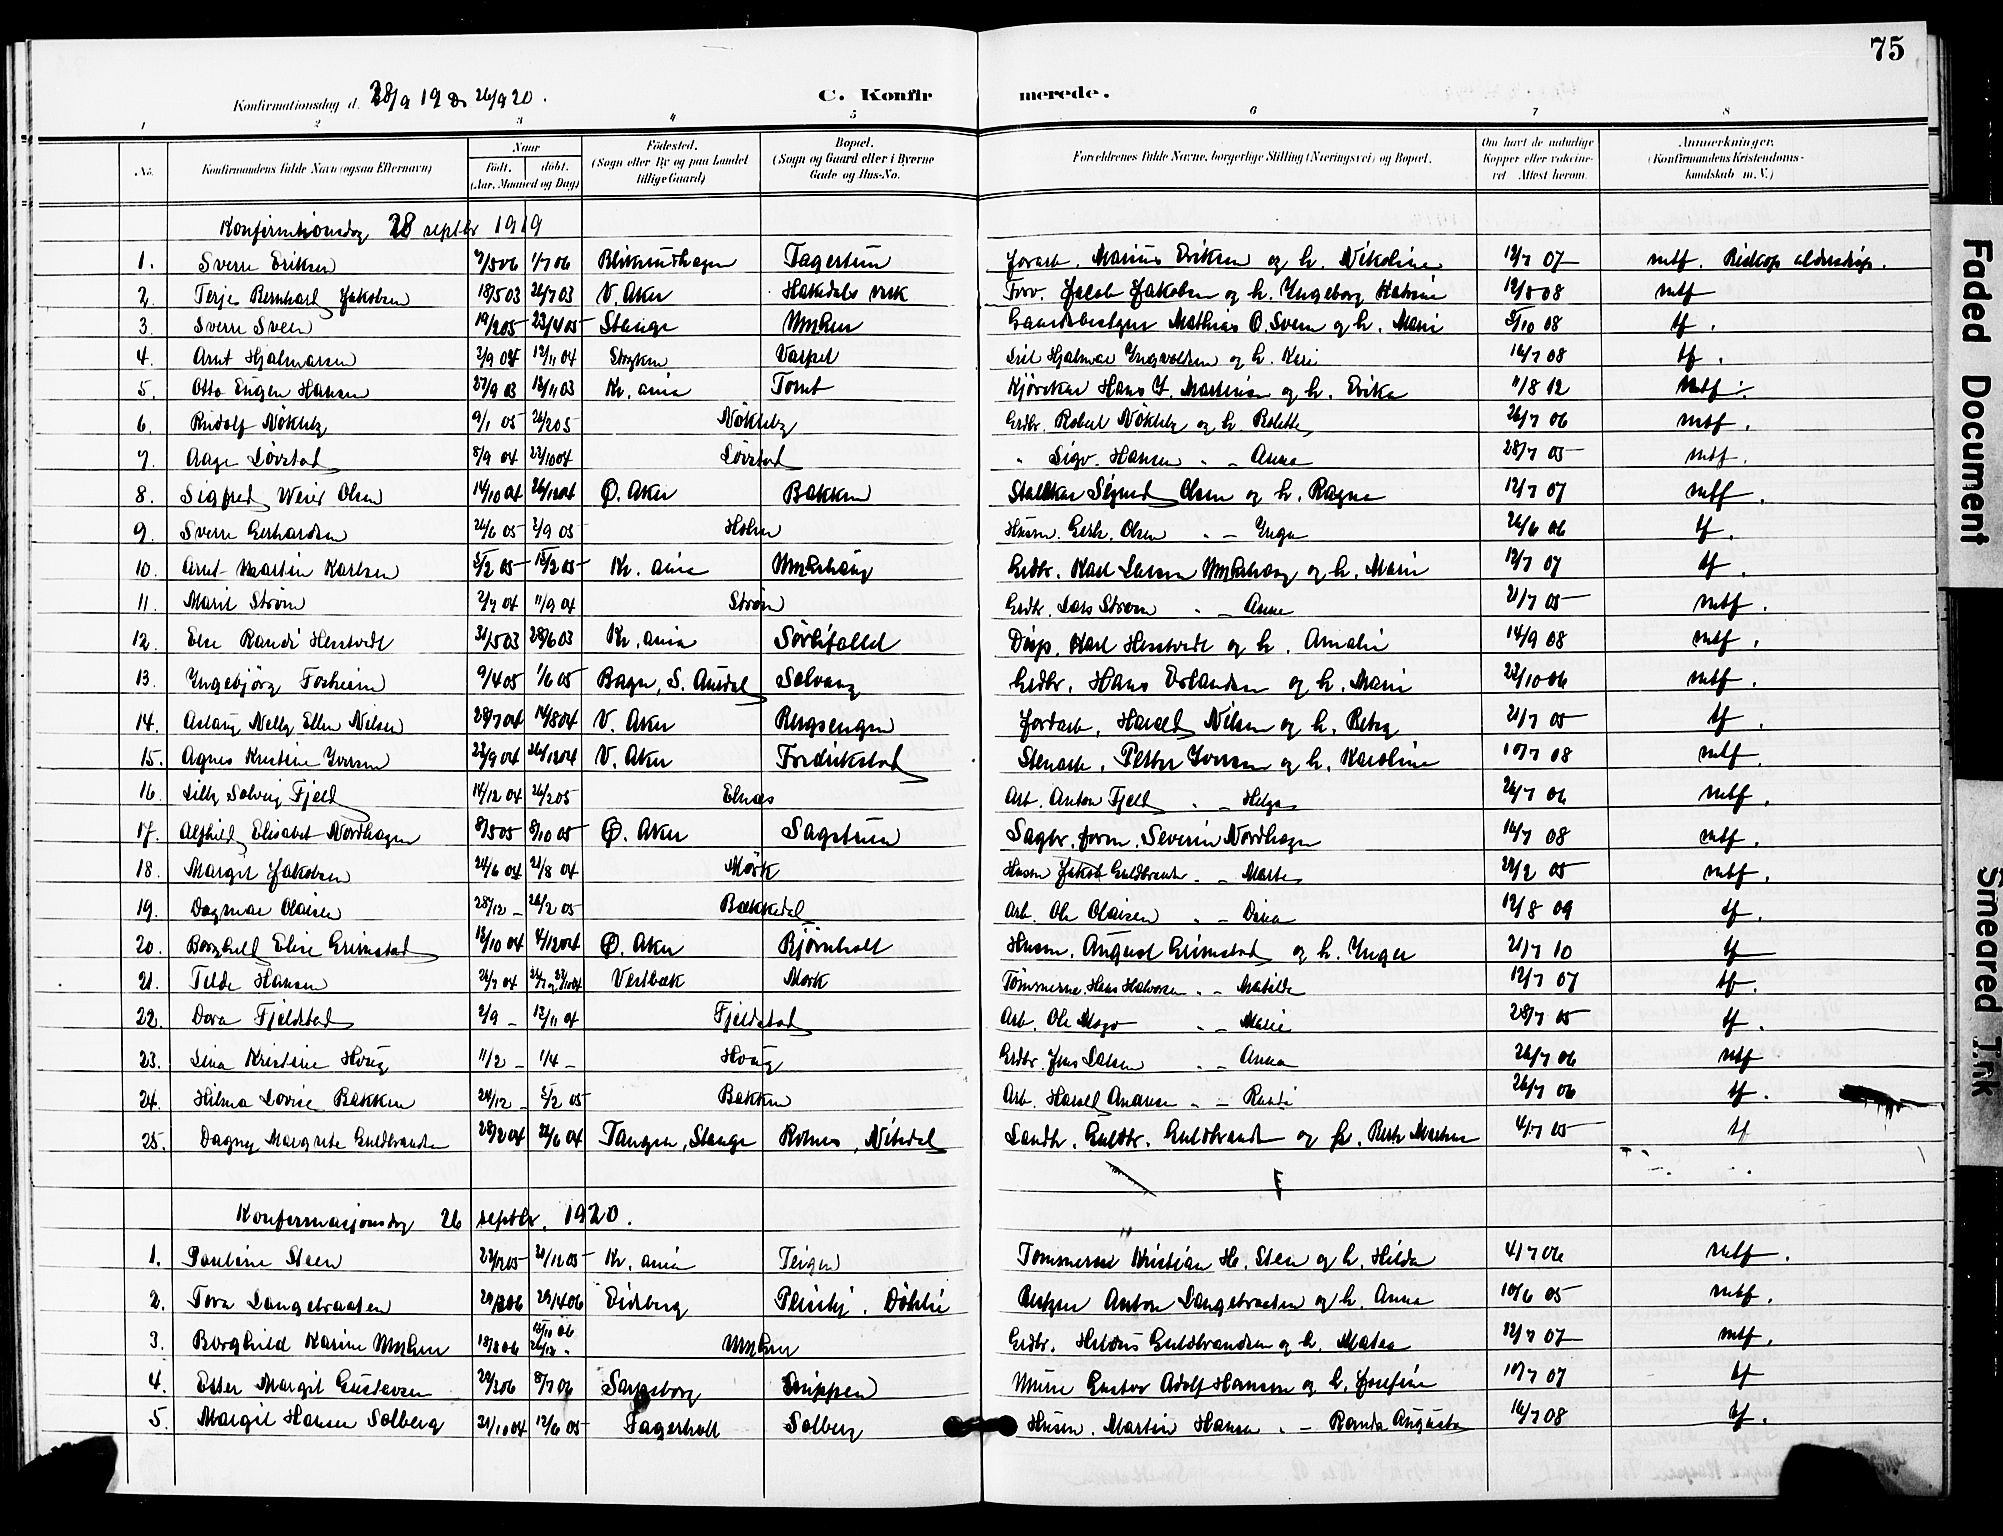 75
Konfirmationsdag d. 28/9 19 & 26/9 20.
C. Konfirmerede.
1 2 3 4 5 6 7 8
No. Konfirmandens fulde Navn (ogsaa Efternavn) Naar Født. døbt. (Aar, Maaned og Dag) Fødested. (Sogn eller By og paa Landet tillige Gaard) Bopæl. (Sogn og Gaard eller i Byerne Gade og Hus-No. Forældrenes fulde Navne, borgerlige Stilling (Næringsvei) og Bopæl. Om havt de naturlige Kopper eller vaccineret Attest herom. Anmerkninger. (Konfirmandens Kristendomskundskab m. V.)
Konfirmationsdag 28 septbr 1919
1. Sverre Eriksen 9/5 06 1/7 06 Fagertun Marius Eriksen og h. Nikoline 12/7 07 mtf. Biskop aldersdisp.
2. Terje Bernhard Jakobsen 18/5 03 26/7 03 V. Aker Hakedals verk Forv. Jacob Jakobsen og h. Ingeborg Katrine 12/8 08 mtf
3. Sverre Sveen 19/2 05 23/4 05 Stange Mathias O. Sveen og h. Marie 5/10 08 tf.
4. Arnt Hjalmarsen 2/9 04 12/11 04 Stryken Varpet Hjalmar Yngvoldsen og h. Kari 16/7 08 tf.
5. Otto Eugen Hansen 27/9 03 12/11 03 Kr.ania Tomt Kjørekar Hans J. Martinsen og h. Erika 11/8 12 mtf.
6. Rudolf Nökleby 9/1 05 26/2 05 Nökleby Grdbr. Robert Nökleby og h. Rolette 26/7 06 mtf.
7. Aage Lövstad 8/9 04 23/10 04 Lövstad " Sigv. Hansen " – Anna 28/7 05 mtf.
8. Sigfred Weier Olsen 14/10 04 26/12 04 Ø. Aker Bakken Staldkar Sigurd Olsen og h. Ragna 12/7 07 mtf.
9. Sverre Gerhardsen 26/6 05 3/9 05 Holm Husm. Gerh. Olsen " – Inga 26/6 06 tf.
10. Arnt Martin Karlsen 5/2 05 Kr.ania Grdbr. Karl Larsen og h. Marie 12/7 07 tf.
11. Marit Ström 2/7 04 11/9 04 Ström Grdbr. Lars Ström " – Anne 21/7 05 mtf.
12. Else Randi Herstvedt 31/5 03 28/6 03 Kr.ania Disp. Karl Herstvedt og h. Amalie 14/9 08 mtf.
13. Ingebjörg 9/4 05 1/6 05 Bagn, S. Aurdal Solvang Grdbr. Hans Erlandsen og h. Marie 23/10 06 mtf.
14. Aslaug Nelly Ellen Nilsen 28/7 04 14/8 04 V. Aker Bergsengen Jordarb. Harald Nilsen og h. Betsy 21/7 05 tf.
15. Agnes Kristine Iversen 23/9 04 26/12 04 V. Aker Fredrikstad Stenarb. Petter Iversen og h. Karoline 10/7 08 mtf.
16. Lilly Solveig Fjeld 14/12 04 26/2 05 Elnæs Arb. Anton Fjeld " – Helga 26/7 06 mtf.
17. Alfhild Elisabet Nordhagen 8/5 05 8/10 05 Ø. Aker Sagstuen Sagbr. form. Severin Nordhagen 16/7 08 mtf.
18. Margit Jakobsen 24/6 04 21/8 04 Mörk Husm Jakob Guldbrands. " – Marte 22/2 05 mtf.
19. Dagmar Olaisen 28/12 – 26/2 05 Bækkedal Arb. Ole Olaisen " – Dina 12/8 09 tf.
20. Borghild Elise Grimstad 12/10 04 4/12 04 Ø. Aker Björnholt Husm. August Grimstad og h. Inger 21/7 10 tf
21. Telda Hansen 26/7 04 Vestbæk Mork Tömmerm. Hans Halvorsen " – Matilde 12/7 07 tf.
22. Dora Fjeldstad 2/9 – 13/11 04 Fjeldstad Arb. Ole Mago " – Marie 28/7 05 tf.
23. Lina Kristine Haug 11/2 – 1/4 – Haug Grdbr Jens Larsen " – Anna 26/7 06 mtf
24. Hilma Lovise Bakken 24/12 – 5/2 05 Bakken Arb. Harald Andersen " – Randi 26/7 06 tf.
25. Dagny Margrete Guldbrandsen 28/2 04 26/6 04 Tangen, Stange Rotnes, Nitedal Landh. Guldbr. Guldbrands og h. Berte Martea 4/7 05 tf
Konfirmasjonsdag 26 septbr. 1920.
1. Pauline Steen 26/12 05 Kr.ania Teigen Tömmerm Kristian H. Steen og h. Hilda 4/7 06 mtf.
2. Tora Langebraaten 29/4 06 Eidsberg Anton Langebraaten og h. Anna 10/6 05 mtf.
3. Borghild Karine 18/8 06 Grdbr. Guldbrandsen og h. Matea 12/7 07 mtf.
4. Ester Margit Gustavsen 29/3 06 8/7 06 Sarpsborg Snippen Murer Gustav Adolf Hansen og h. Josefine 10/7 07 tf
5. Margit Hansen Solberg 21/10 04 12/6 05 Fagerholt Solberg Husm. Martin Hansen " – Randa Augusta 16/7 08 tf.
Faded Document
Smeared Ink